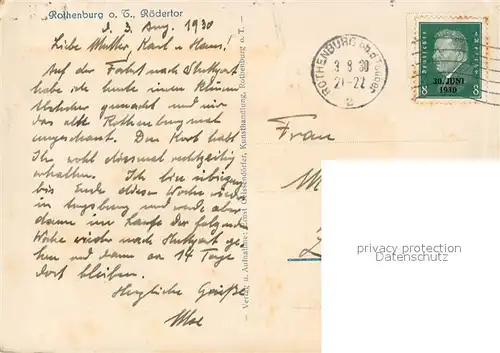 Rothenburg o. T., Rödertor
d. 3. Aug. 1930
Liebe Mutter, Karl u. Hans!
Auf der Fahrt nach Stuttgart
habe ich heute einen kleinen
Abstecher gemacht und mir
das alte Rothenburg mal
angeschaut. Den Korb habt
Ihr wohl diesmal rechtzeitig
erhalten. Ich bin übrigens
bis Ende dieser Woche wieder
in Augsburg und werde aber
dann im Laufe der folgenden
Woche wieder nach Stuttgart ge
hen und dann ca 14 Tage
dort bleiben.
Herzliche Grüße
Verlag u. Aufnahme: Ernst Geissendörfer, Kunsthandlung, Rothenburg o. T.
ROTHENBURG ob d Tauber
3 8 30
21-22
2
Deutsches Reich
30. JUNI
1930
8 8
Frau
privacy protection
Datenschutz